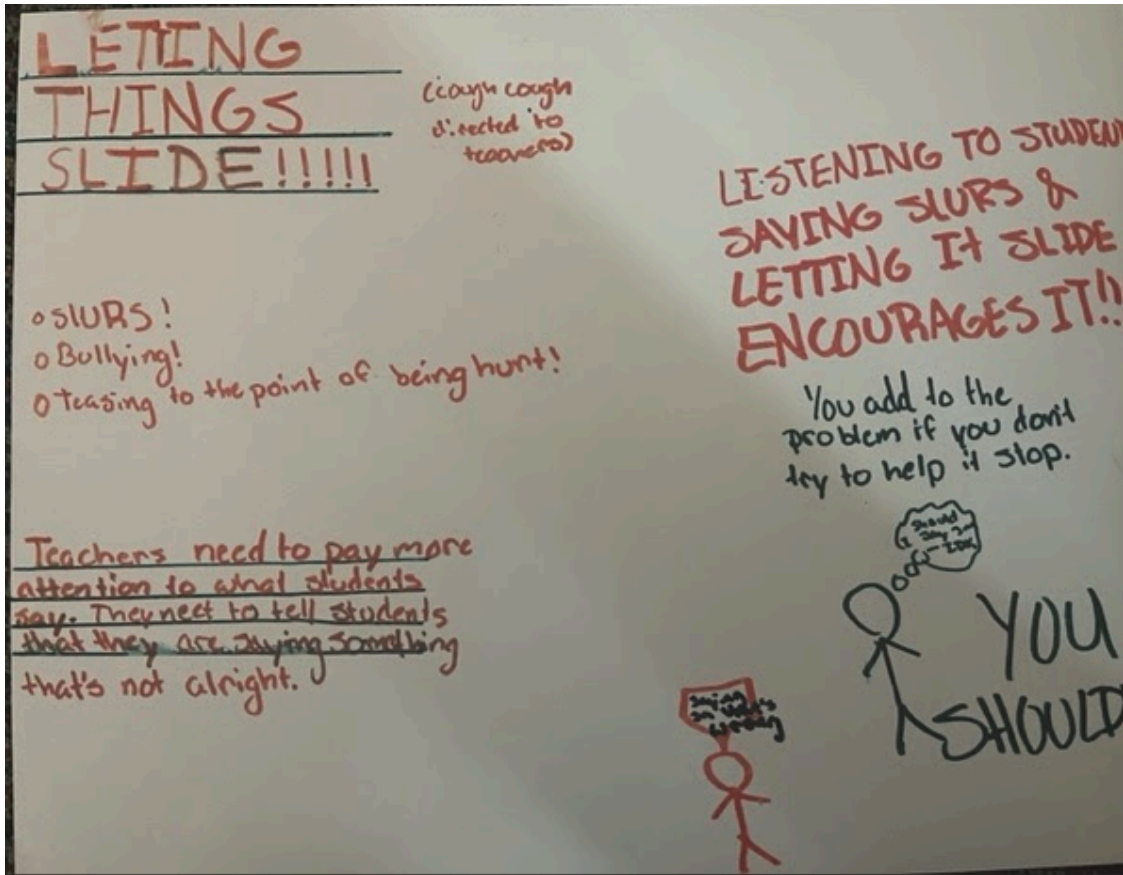 LETTING
THINGS
SLIDE!!!!!
(cough cough
directed to
teachers)
o SLURS!
o Bullying!
o Teasing to the point of being hurt!
Teachers need to pay more
attention to what students
say. They need to tell students
that they are saying something
that's not alright.
LISTENING TO STUDENT
SAYING SLURS &
LETTING It SLIDE
ENCOURAGES IT!!
You add to the
problem if you don't
try to help it stop.
Should
I say
IDK
YOU
SHOULD
saying
wrong